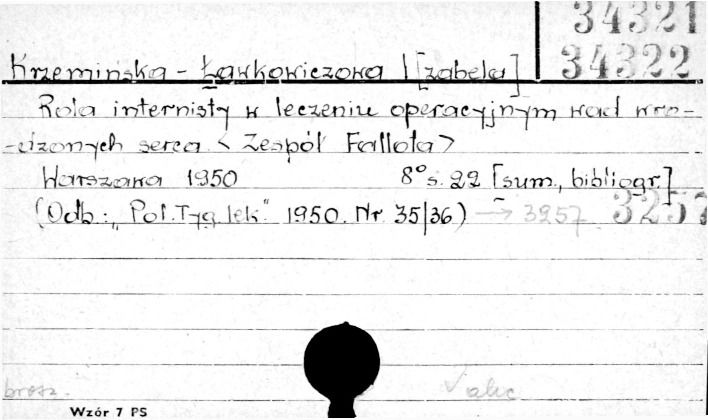 34321
34322
Krzemińska-Ławkowiczowa I[zabela]
Rola internisty w leczeniu operacyjnym wad wro-
-dzonych serca <Zespół Fallota>
Warszawa 1950 8° s. 22 [sum., bibliogr.]
(Odb.: "Pol. Tyg. lek" 1950. Nr 35/36) → 3257 3257
brosz.
Wzór 7 PS